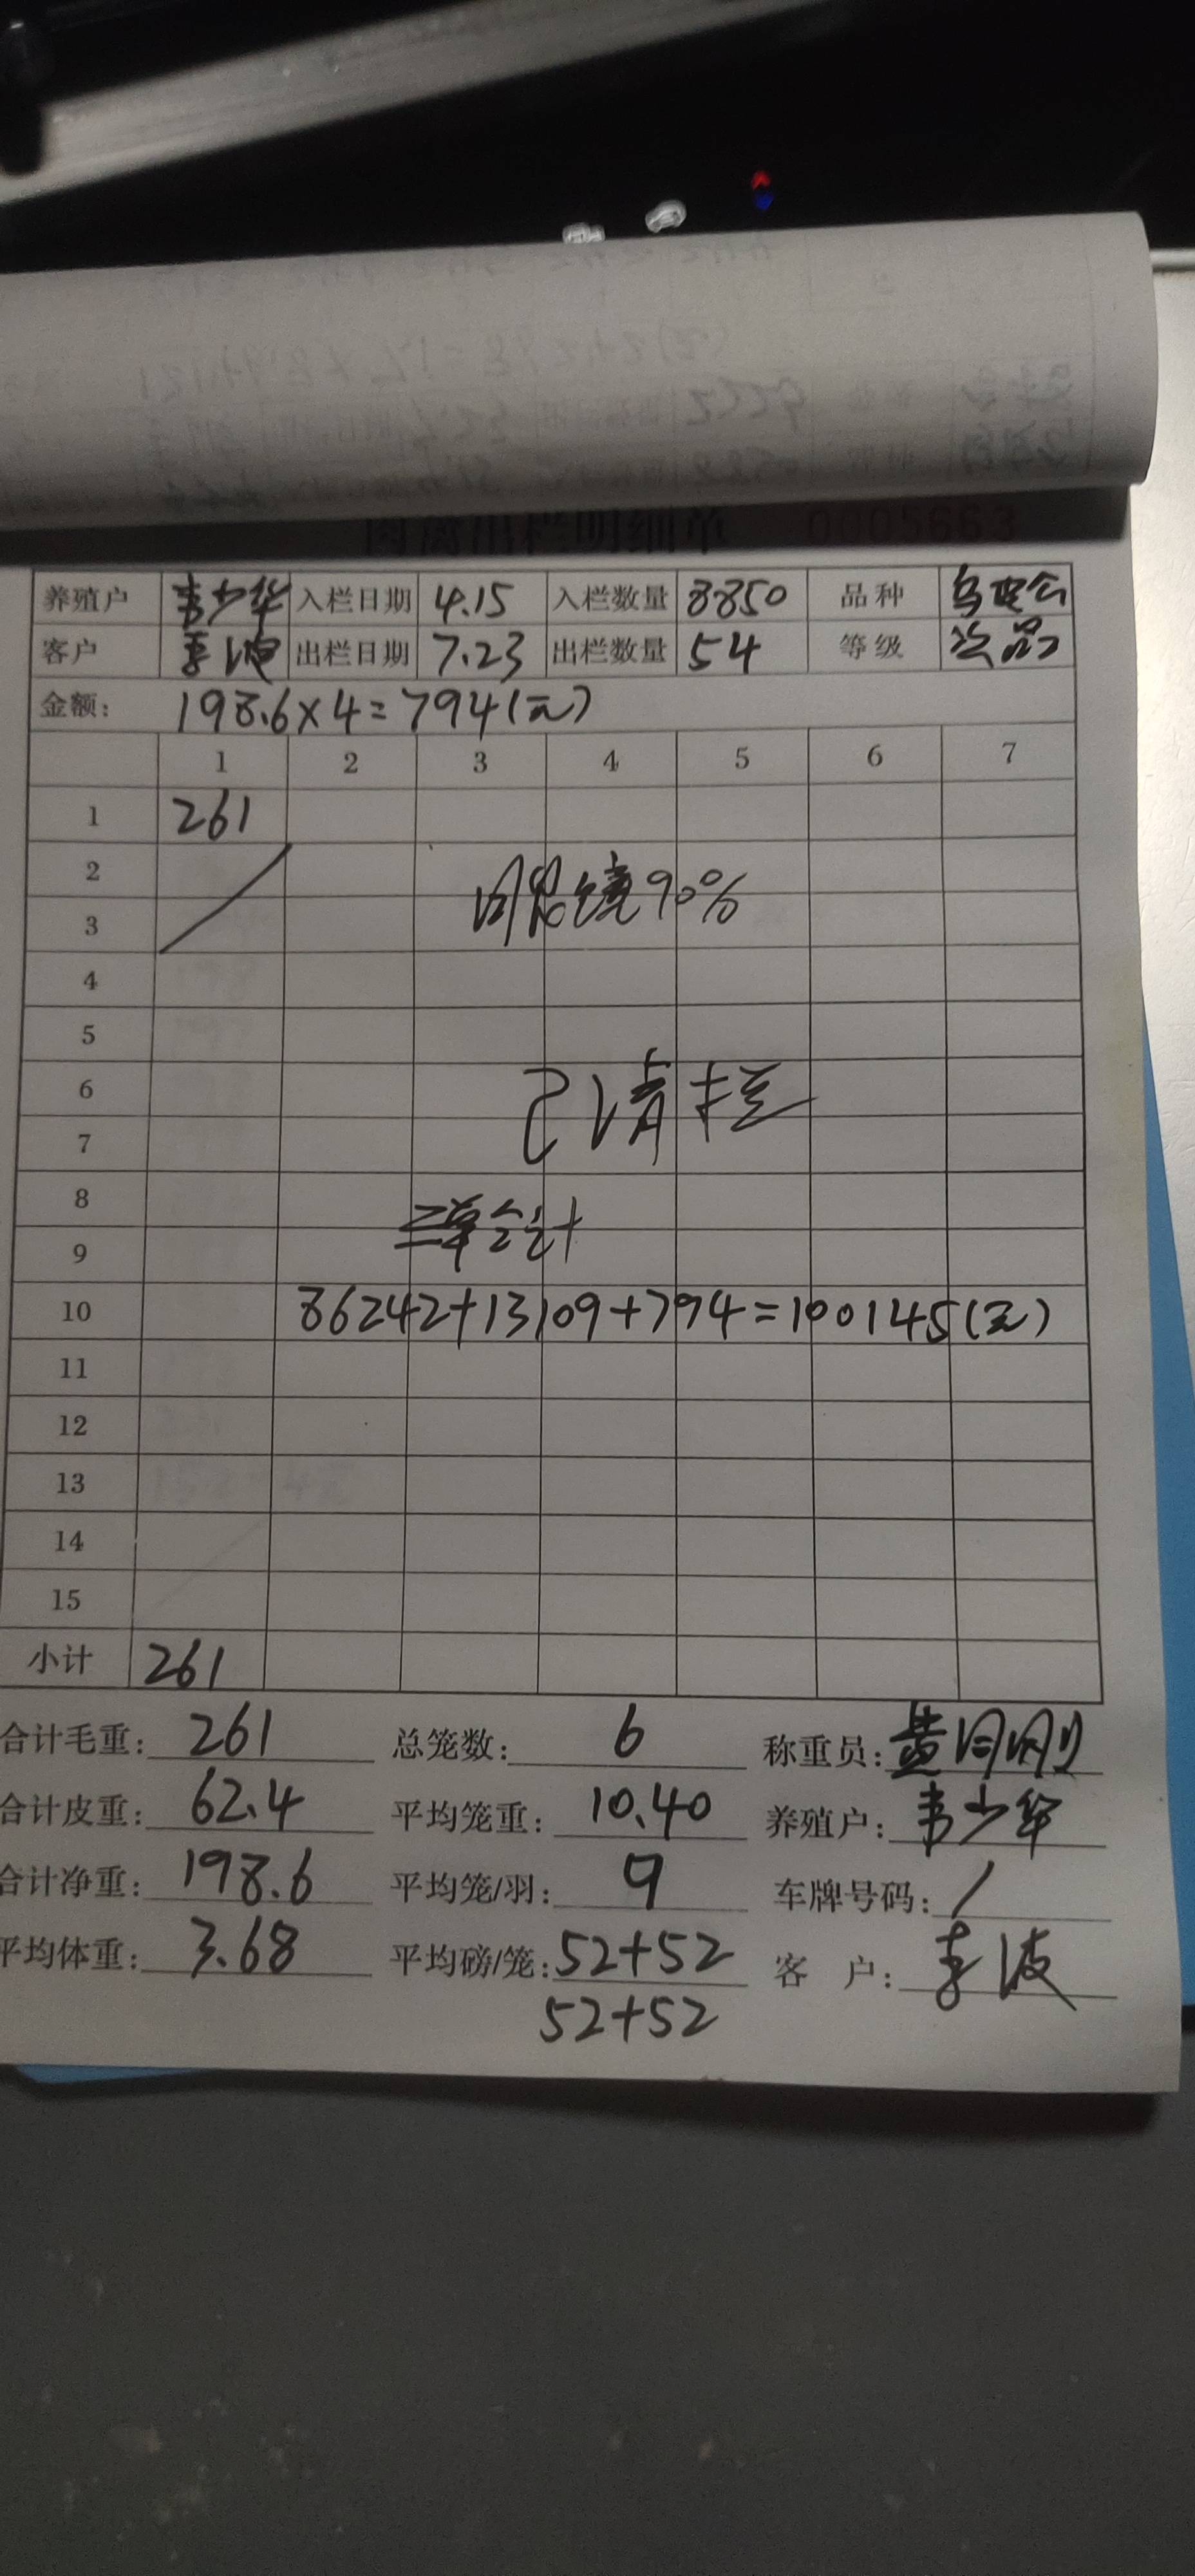 肉禽出栏明细单 0005663
养殖户 韦少华 入栏日期 4.15 入栏数量 8850 品种
客户 李波 出栏日期 7.23 出栏数量 54 等级 次品
金额: 198.6×4=794(元)
1 2 3 4 5 6 7
1 261
2
3 90%
4
5
6
7 已清栏
8
9 三单合计
10 86242+13109+794=100145(元)
11
12
13
14
15
小计 261
合计毛重: 261 总笼数: 6 称重员: 黄
合计皮重: 62.4 平均笼重: 10.40 养殖户: 韦少华
合计净重: 198.6 平均笼/羽: 9 车牌号码: /
平均体重: 3.68 平均磅/笼: 52+52 客 户: 李波
52+52